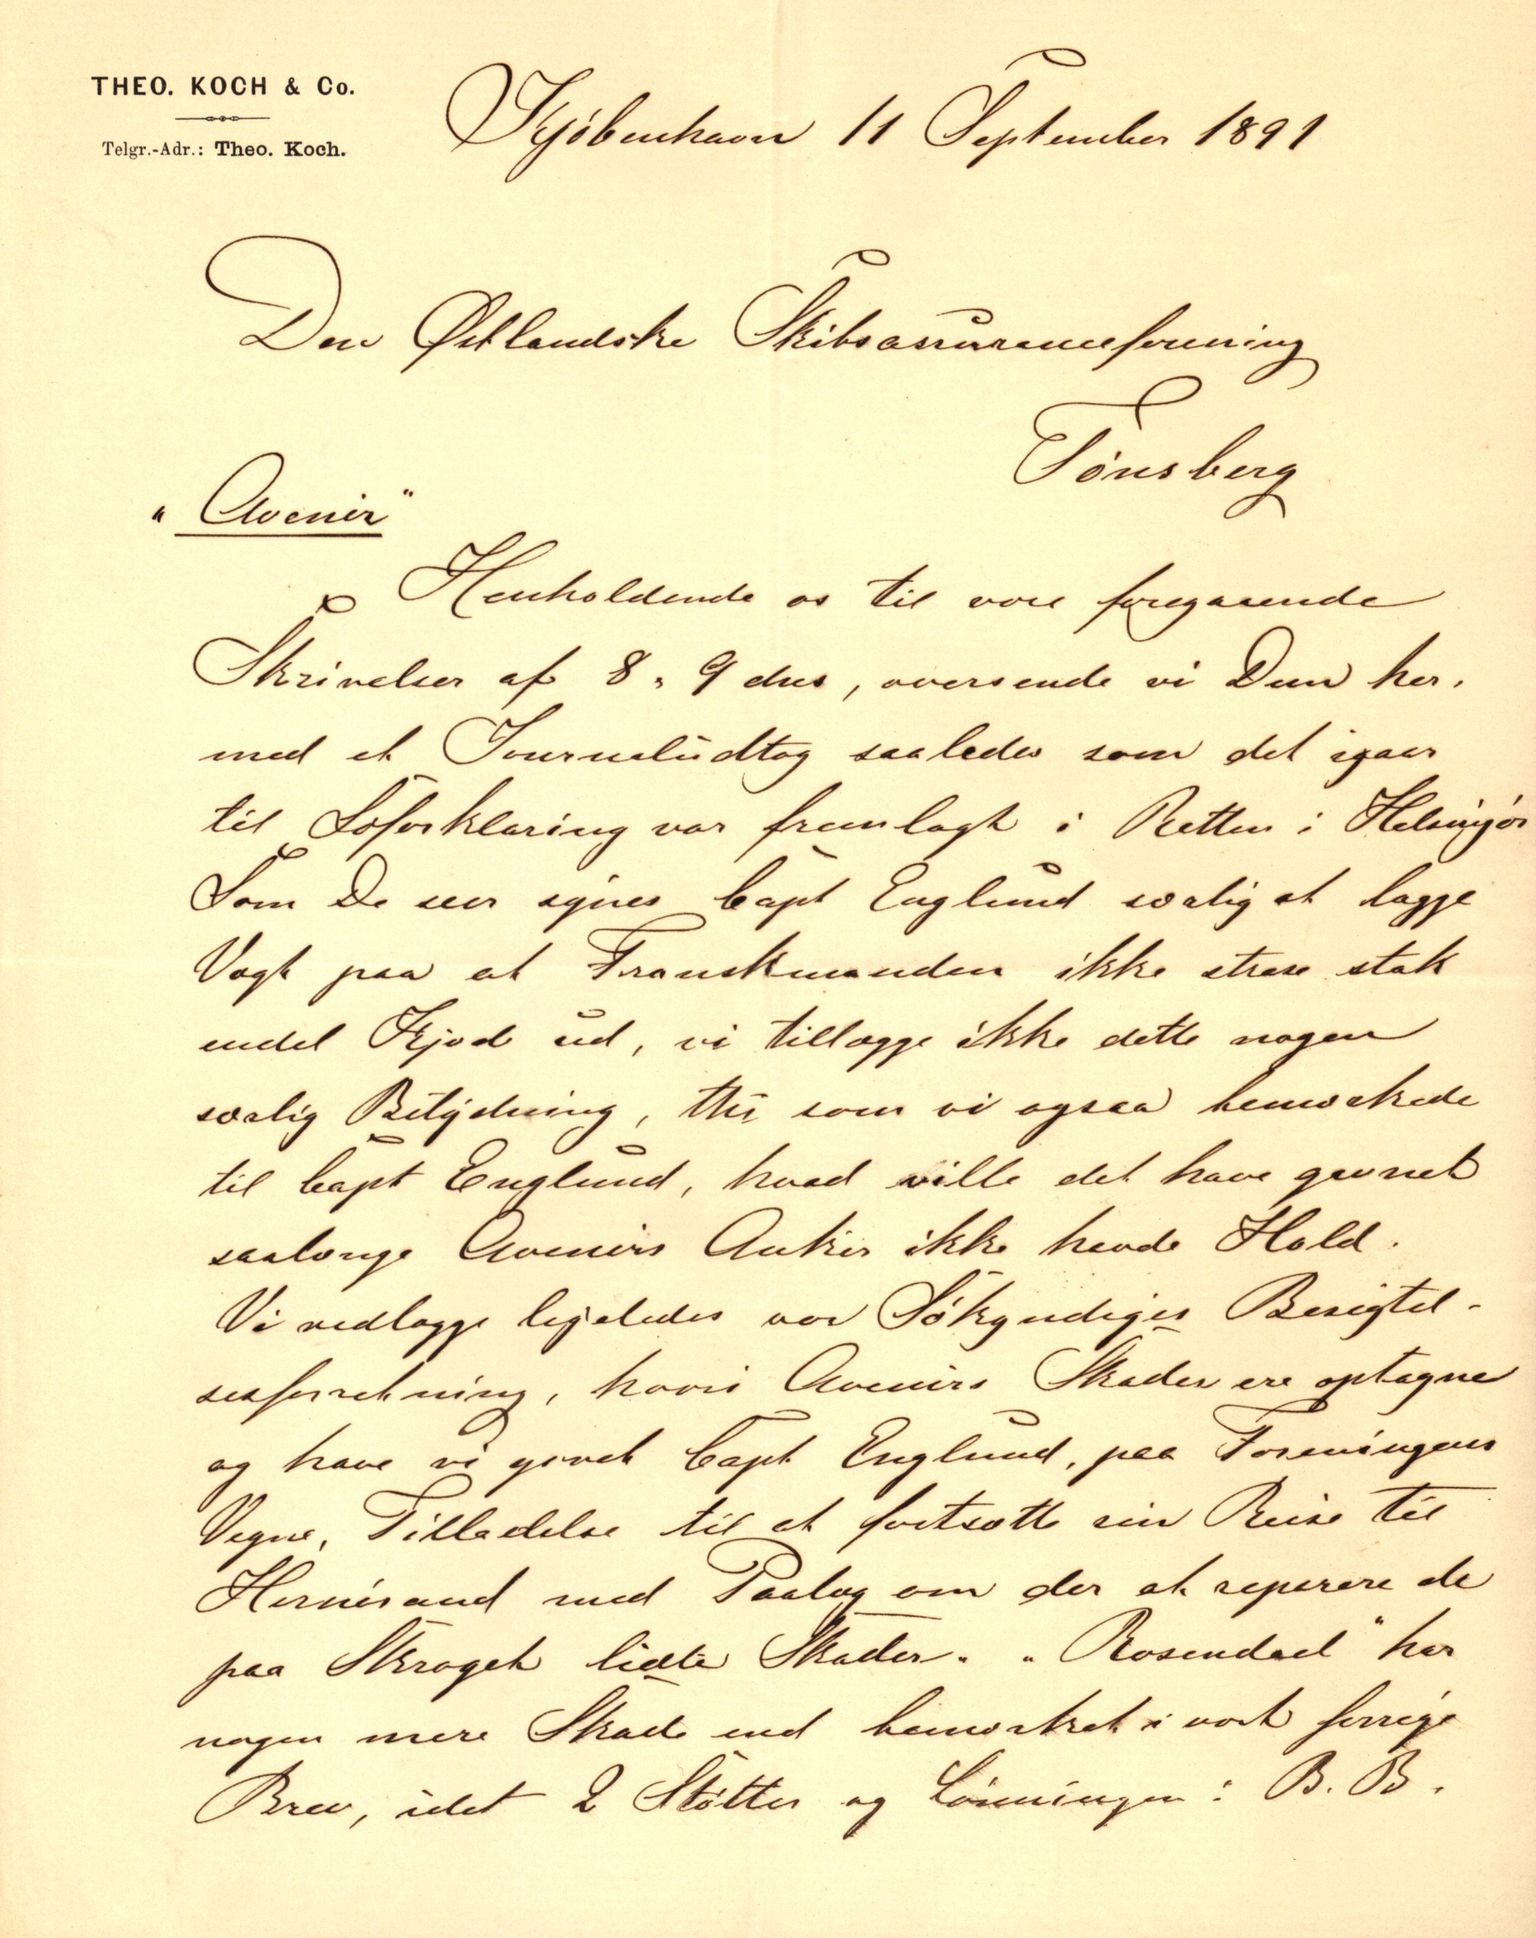 THEO. KOCH & Co.
Telgr.-Adr.: Theo. Koch.
Kjöbenhavn 11 September 1891
Den Østlandske Skibsassuranceforening
Tönsberg
"Avenir"
Henholdende os til vore foregaaende
Skrivelser af 8 & 9 ds, oversende vi Dem her-
med et Journaludtog saaledes som det igaar
til Söforklaring var fremlagt i Retten i Helsingör
Som De seer synes Capt Englund særlig at lægge
Vægt paa at Franskmanden ikke strax stak
endel Kjæde ud, vi tillægge ikke dette nogen
særlig Betydning, thi som vi ogsaa bemærkede
til Capt Englund, hvad ville det have gavnet
saalænge Avenirs Anker ikke havde Hold.
Vi vedlægge ligeledes vor Sökyndiges Besigtel-
sesforretning, hvori Avenirs Skader ere optagne
og have vi givet Capt Englund, paa Foreningens
Vegne, Tilladelse til at fortsætte sin Reise til
Hernösand med Paalæg om der at reparere de
paa Skroget lidte Skader. "Rosendael" har
nogen mere Skade end bemærket i vort forrige
Brev, idet 2 Stötter og Lönningen i B. B.